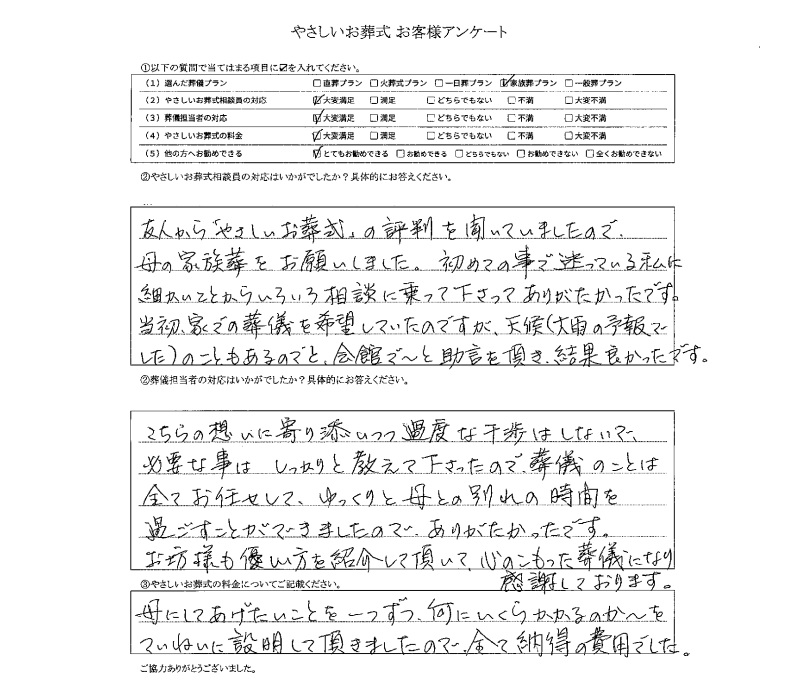 やさしいお葬式 お客様アンケート
①以下の質問で当てはまる項目に☑を入れてください。
(1) 選んだ葬儀プラン ☐直葬プラン ☐火葬式プラン ☐一日葬プラン ☑家族葬プラン ☐一般葬プラン
(2) やさしいお葬式相談員の対応 ☑大変満足 ☐満足 ☐どちらでもない ☐不満 ☐大変不満
(3) 葬儀担当者の対応 ☑大変満足 ☐満足 ☐どちらでもない ☐不満 ☐大変不満
(4) やさしいお葬式の料金 ☑大変満足 ☐満足 ☐どちらでもない ☐不満 ☐大変不満
(5) 他の方へお勧めできる ☑とてもお勧めできる ☐お勧めできる ☐どちらでもない ☐お勧めできない ☐全くお勧めできない
②やさしいお葬式相談員の対応はいかがでしたか？具体的にお答えください。
...
友人から「やさしいお葬式」の評判を聞いていましたので、
母の家族葬をお願いしました。初めての事で迷っている私に
細かいことからいろいろ相談に乗って下さってありがたかったです。
当初、家での葬儀を希望していたのですが、天候(大雨の予報で
した)のこともあるのでと、会館で〜と助言を頂き、結果良かったです。
②葬儀担当者の対応はいかがでしたか？具体的にお答えください。
こちらの想いに寄り添いつつ過度な干渉はしないで、
必要な事はしっかりと教えて下さったので、葬儀のことは
全てお任せして、ゆっくりと母との別れの時間を
過ごすことができましたので、ありがたかったです。
お坊様も優しい方を紹介して頂いて、心のこもった葬儀になり
感謝しております。
③やさしいお葬式の料金についてご記載ください。
母にしてあげたいことを一つずつ、何にいくらかかるのか〜を
ていねいに説明して頂きましたので、全て納得の費用でした。
ご協力ありがとうございました。